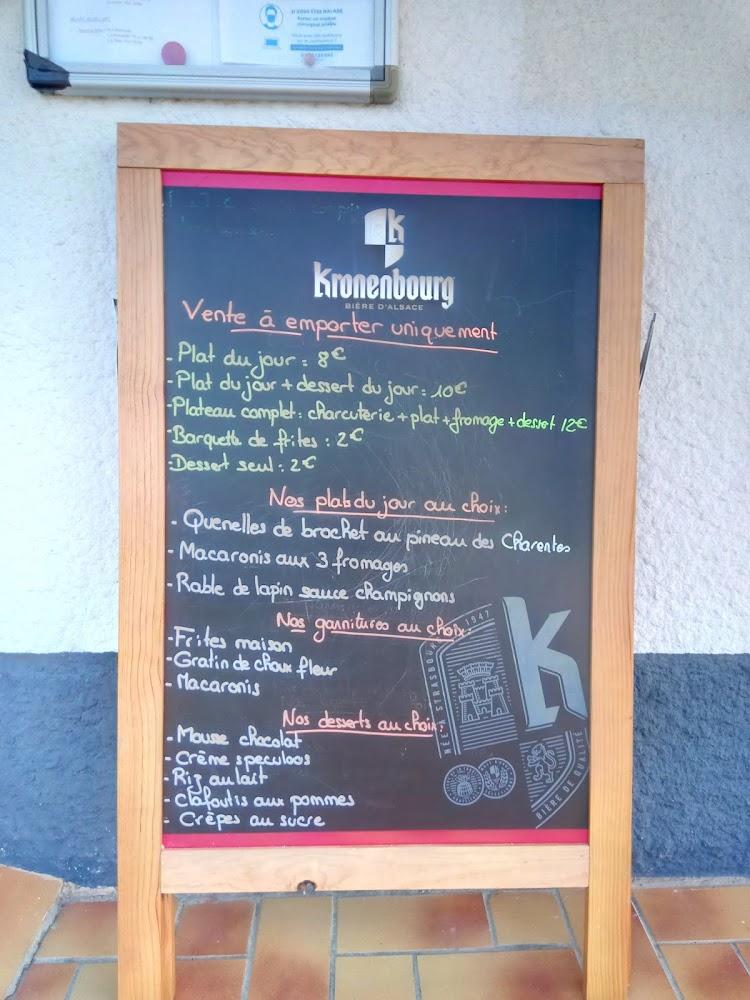 SI VOUS ÊTES MALADE
Kronenbourg
BIÈRE D'ALSACE
Vente à emporter uniquement
- Plat du jour : 8€
- Plat du jour + dessert du jour : 10€
- Plateau complet : charcuterie + plat + fromage + dessert 12€
- Barquette de frites : 2€
- Dessert seul : 2€
Nos plats du jour au choix :
- Quenelles de brochet au pineau des Charentes
- Macaronis aux 3 fromages
- Rable de lapin sauce champignons
Nos garnitures au choix :
- Frites maison
- Gratin de choux fleur
- Macaronis
Nos desserts au choix :
- Mousse chocolat
- Crème speculoos
- Riz au lait
- Clafoutis aux pommes
- Crêpes au sucre
NÉE À STRASBOURG 1947
K
BIÈRE DE QUALITÉ